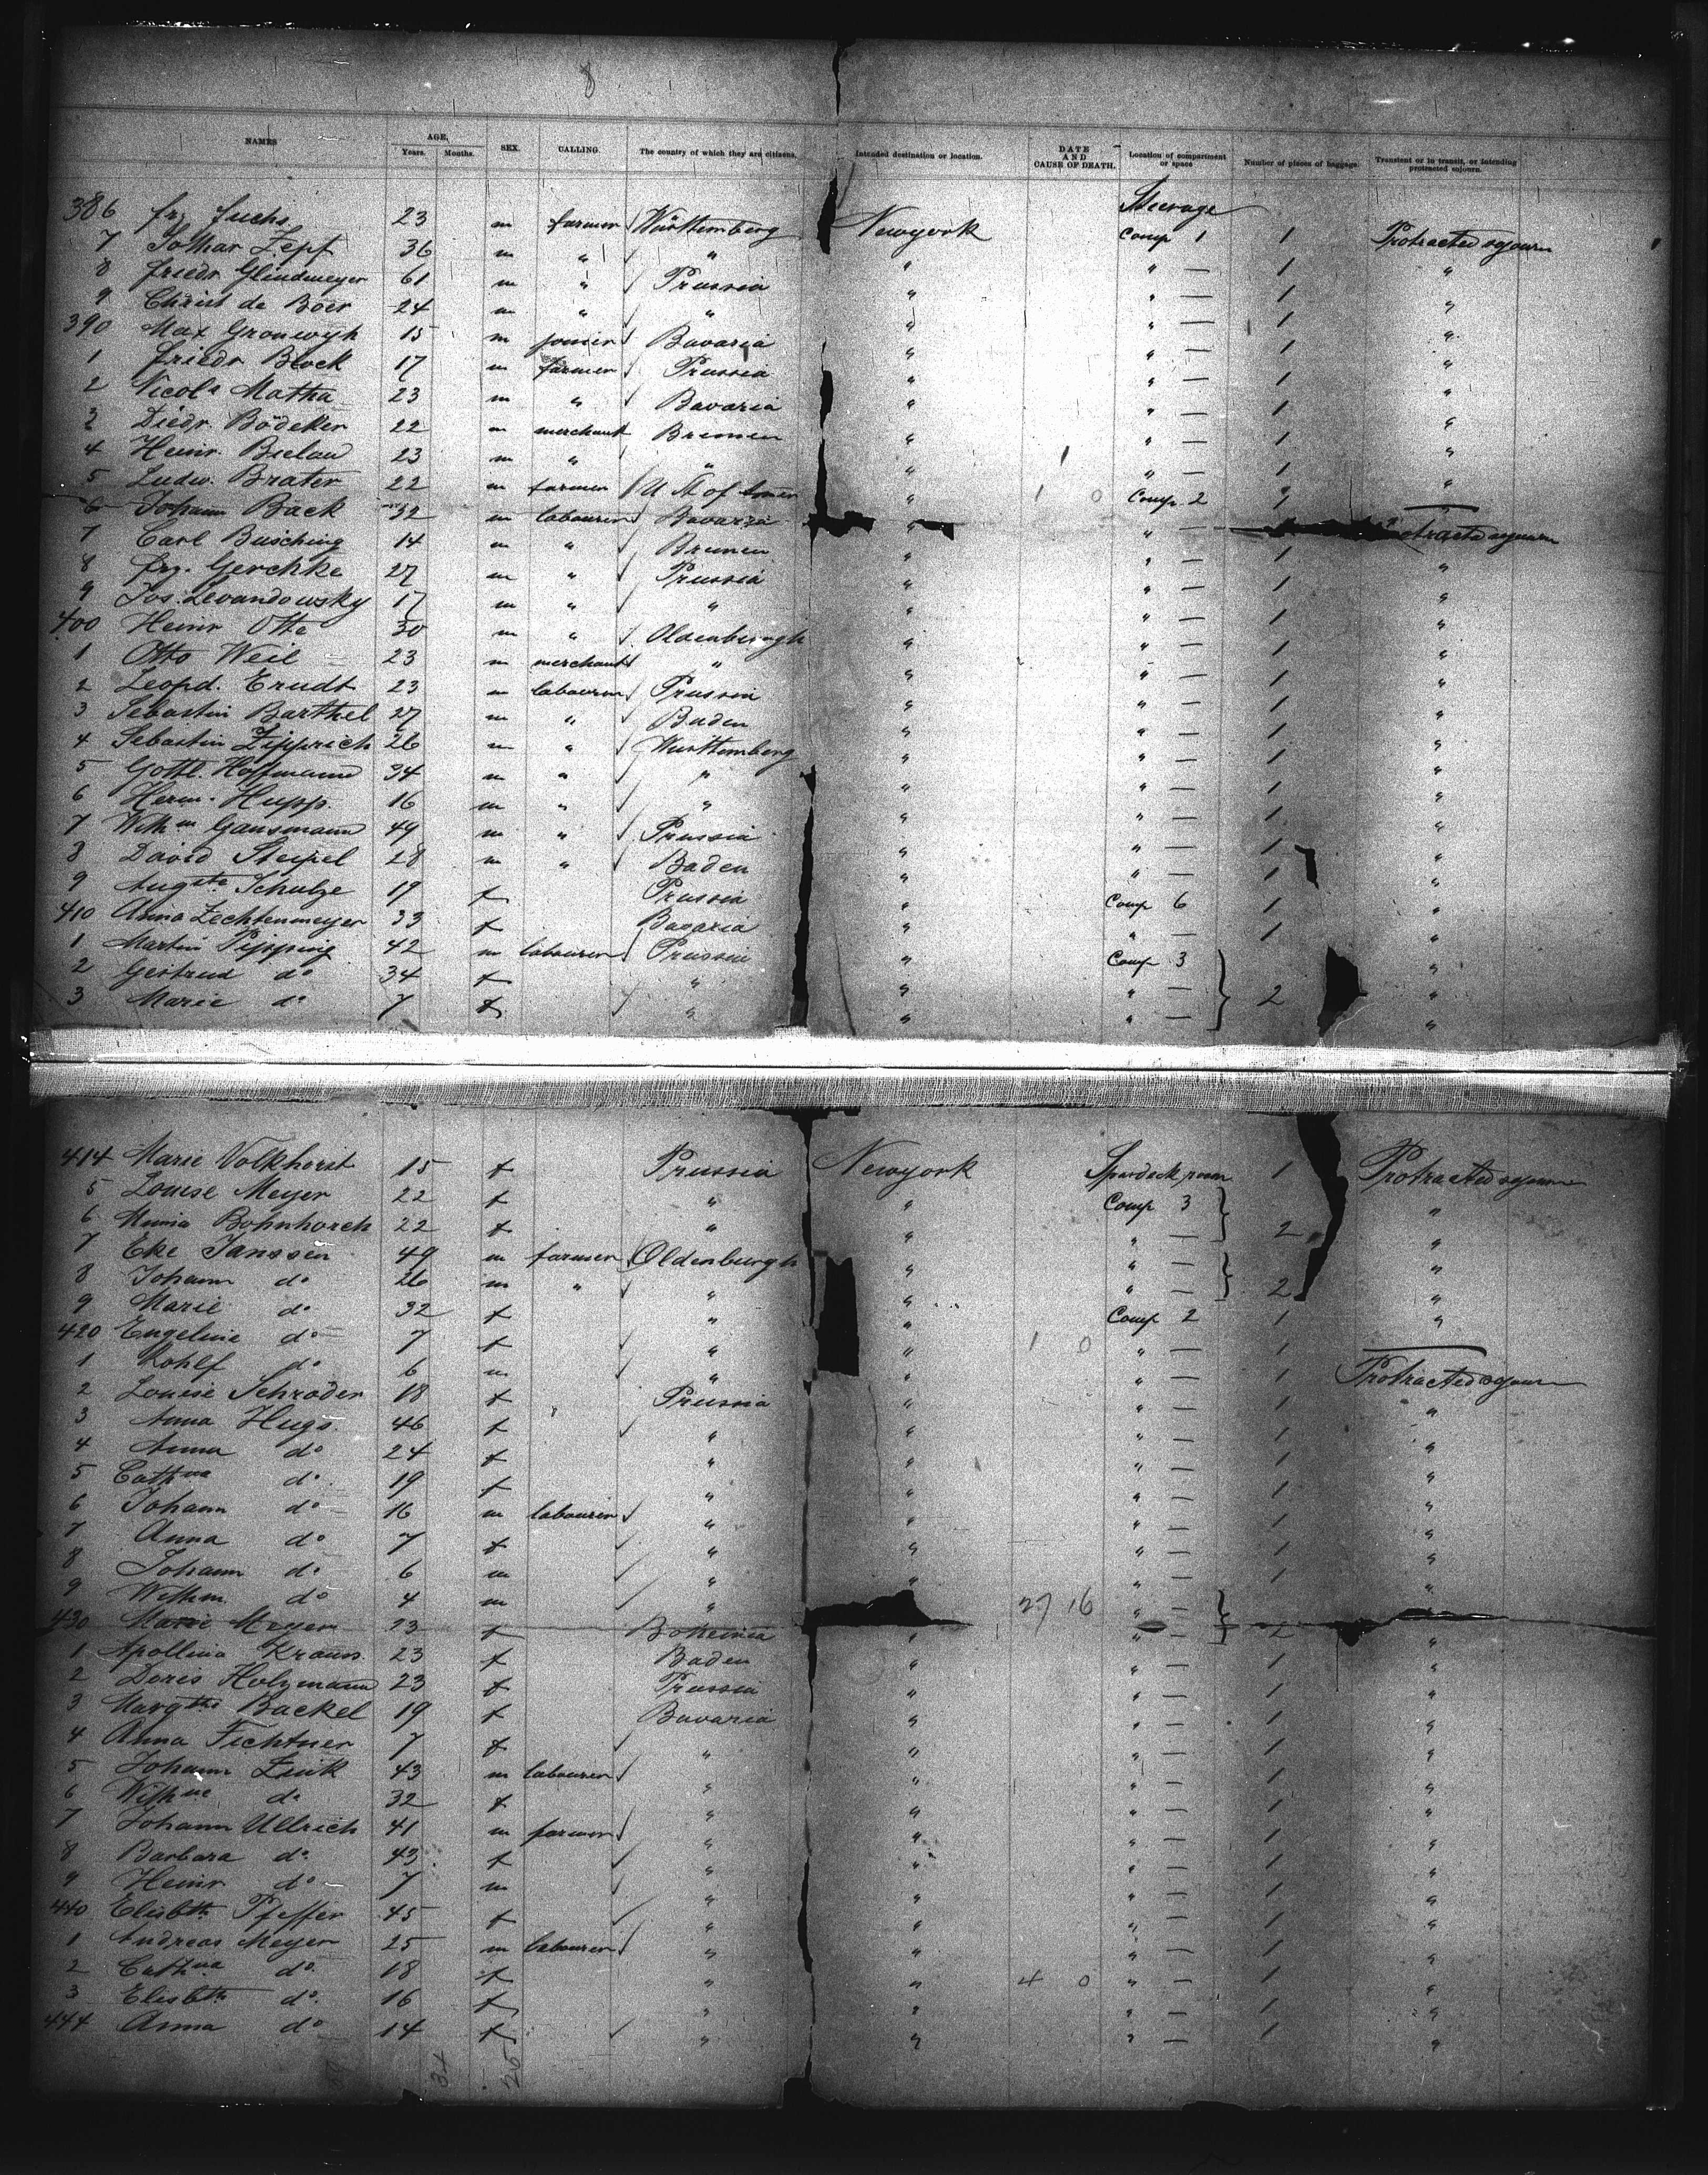 8
NAMES AGE, Years. Months. SEX. CALLING. The country of which they are citizens. Intended destination or location. DATE AND CAUSE OF DEATH. Location of compartment or space Number of pieces of baggage. Transient or in transit, or intending protracted sojourn.
Steerage
386 Frz. Fuchs 23 m farmer Württemberg Newyork Comp 1 1 Protracted sojourn
7 Lothar Zepf 36 m " " " " — 1 "
8 Friedr Glindmeyer 61 m " Prussia " " — 1 "
9 Christ de Boer 24 m " " " " — 1 "
390 Max Gronwyh 15 m joiner Bavaria " " — 1 "
1 Friedr Block 17 m farmer Prussia " " — 1 "
2 Nicols Matha 23 m " Bavaria " " — 1 "
3 Diedr. Bödeker 22 m merchant Bremen " " — 1 "
4 Heinr. Bielau 23 m " " " " — 1 "
5 Ludw. Brater 22 m farmer U St of Amer " 1 0 Comp 2 1 "
6 Johann Back 32 m labourer Bavaria " " — Protracted sojourn
7 Carl Busching 14 m " Bremen " " — 1 "
8 Frz. Gerchke 27 m " Prussia " " — 1 "
9 Jos. Levandowsky 17 m " " " " — 1 "
400 Heinr Otte 30 m " Oldenburgh " " — 1 "
1 Otto Weil 23 m merchant " " " — 1 "
2 Leopd. Erudt 23 m labourer Prussia " " — 1 "
3 Sebastin Barthel 27 m " Baden " " — 1 "
4 Sebastin Zipprich 26 m " Württemberg " " — 1 "
5 Gottl. Hoffmann 34 m " " " " — 1 "
6 Herm. Hupp 16 m " " " " — 1 "
7 Wilhm Gausmann 49 m " Prussia " " — 1 "
8 David Steipel 28 m " Baden " " — 1 "
9 Augste Schulze 19 f Prussia " Comp 6 1 "
410 Anna Zechtenmeyer 33 f Bavaria " " — 1 "
1 Martin Pipping 42 m labourer Prussia " Comp 3 "
2 Gertrud do 34 f " " " — 2 "
3 Marie do 7 f " " " — "
414 Marie Volkhorst 15 f Prussia Newyork Spardeck room 1 Protracted sojourn
5 Louise Meyer 22 f " " Comp 3 "
6 Minna Bohnhorch 22 f " " " — 2 "
7 Eke Janssen 49 m farmer Oldenburgh " " — "
8 Johann do 26 m " " " " — 2 "
9 Marie do 32 f " " Comp 2 1 "
420 Engeline do 7 f " " 1 0 " — 1
1 Rohlf do 6 m " " " — 1 Protracted sojourn
2 Louise Schröder 18 f Prussia " " — 1 "
3 Anna Hugo 46 f " " " — 1 "
4 Anna do 24 f " " " — 1 "
5 Cathna do. 19 f " " " — 1 "
6 Johann do 16 m labourer " " " — 1 "
7 Anna do 7 f " " " — 1 "
8 Johann do 6 m " " " — 1 "
9 Wilhm. do 4 m " 27 16 " —
430 Marie Meyer 23 f Bohemia " " — 2 "
1 Apollina Krauss. 23 f Baden " " — 1 "
2 Doris Holzmann 23 f Prussia " " — 1 "
3 Margthe Backel 19 f Bavaria " " — 1 "
4 Anna Fichtner 7 f " " " — 1 "
5 Johann Zink 43 m labourer " " " — 1 "
6 Wilhne do 32 f " " " — 1 "
7 Johann Ullrich 41 m farmer " " " — 1 "
8 Barbara do. 43 f " " " — 1 "
9 Heinr do 7 m " " " — 1 "
440 Elisbth Pfeffer 45 f " " " — 1 "
1 Andreas Meyer 25 m labourer " " " — 1 "
2 Cathna do. 18 f " " 4 0 " — 1 "
3 Elisbth do. 16 f " " " — 1 "
444 Anna do 14 f " " " — 1 "
34 26